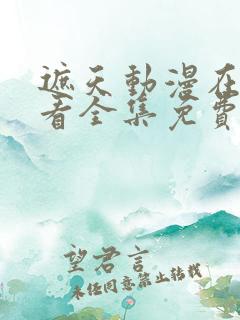 遮天動漫在
看全集免費
望君言
未经同意禁止转载